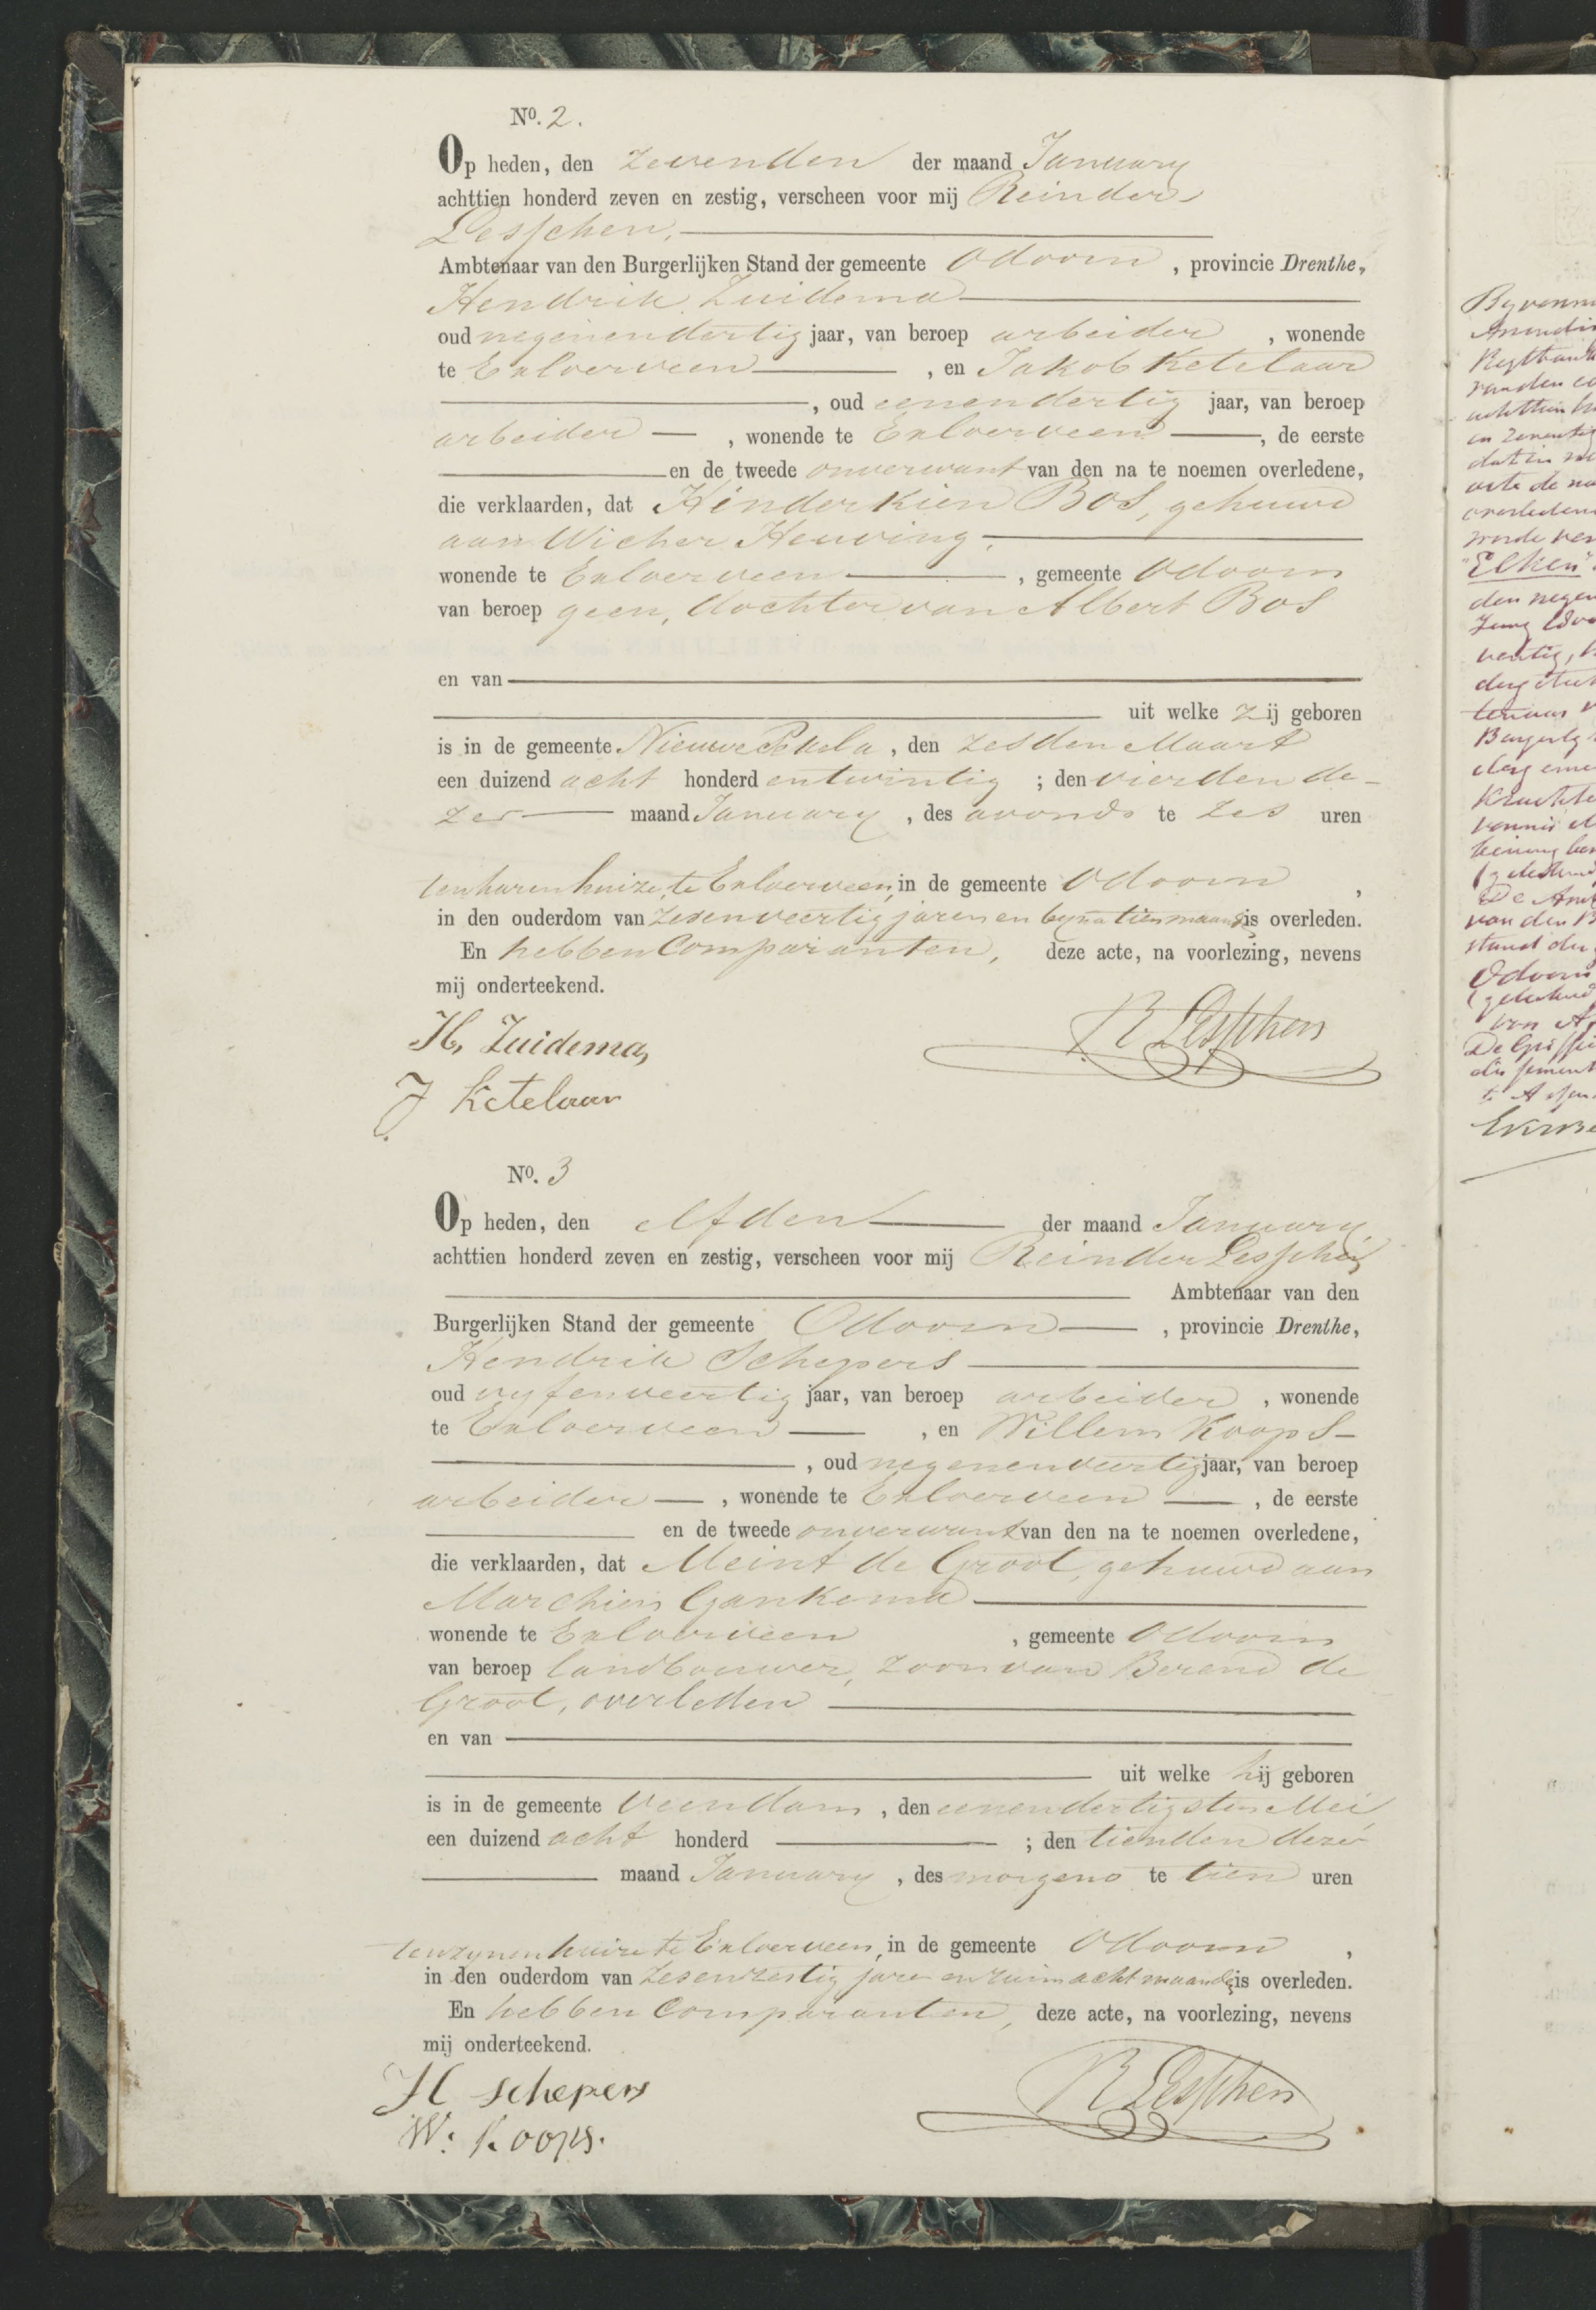 No. 2.
Op heden, den zevenden der maand January
achttien honderd zeven en zestig, verscheen voor mij Reinder
Lesschen,
Ambtenaar van den Burgerlijken Stand der gemeente Odoorn, provincie Drenthe,
Hendrik Zuidema
oud negenendertig jaar, van beroep arbeider, wonende
te Exloerveen, en Jakob Ketelaar
, oud eenendertig jaar, van beroep
arbeider, wonende te Exloerveen, de eerste
en de tweede onverwant van den na te noemen overledene,
die verklaarden, dat Hinderkien Bos, gehuwd
aan Wicher Heuving,
wonende te Exloerveen, gemeente Odoorn
van beroep geen, dochter van Albert Bos
en van
uit welke zij geboren
is in de gemeente Nieuwe Pekela, den zesden Maart
een duizend acht honderd en twintig; den vierden de-
zer maand January, des avonds te zes uren
ten haren huize te Exloerveen, in de gemeente Odoorn,
in den ouderdom van zesenveertig jaren en byna tien maanden is overleden.
En hebben Comparanten, deze acte, na voorlezing, nevens
mij onderteekend.
H. Zuidema, R Lesschen
J Ketelaar
No. 3
Op heden, den elfden der maand January
achttien honderd zeven en zestig, verscheen voor mij Reinder Lesschen
Ambtenaar van den
Burgerlijken Stand der gemeente Odoorn, provincie Drenthe,
Hendrik Schepers
oud vyfenveertig jaar, van beroep arbeider, wonende
te Exloerveen, en Willem Koops
, oud negenenveertig jaar, van beroep
arbeider, wonende te Exloerveen, de eerste
en de tweede onverwant van den na te noemen overledene,
die verklaarden, dat Meint de Groot, gehuwd aan
Marchien Gankema
wonende te Exloerveen, gemeente Odoorn
van beroep landbouwer, zoon van Berend de
Groot, overleden
en van
uit welke hij geboren
is in de gemeente Veendam, den eenendertigsten Mei
een duizend acht honderd; den tienden dezer
maand January, des morgens te tien uren
ten zynen huize te Exloerveen, in de gemeente Odoorn,
in den ouderdom van zesenzestig jaren en ruim acht maanden is overleden.
En hebben Comparanten, deze acte, na voorlezing, nevens
mij onderteekend.
H Schepers R Lesschen
W. Koops.
By vonn
Regtban
en zeventig
overleden
worde ver
"Elken"
den negen
Burgerly
van den B
stand der
Odoorn